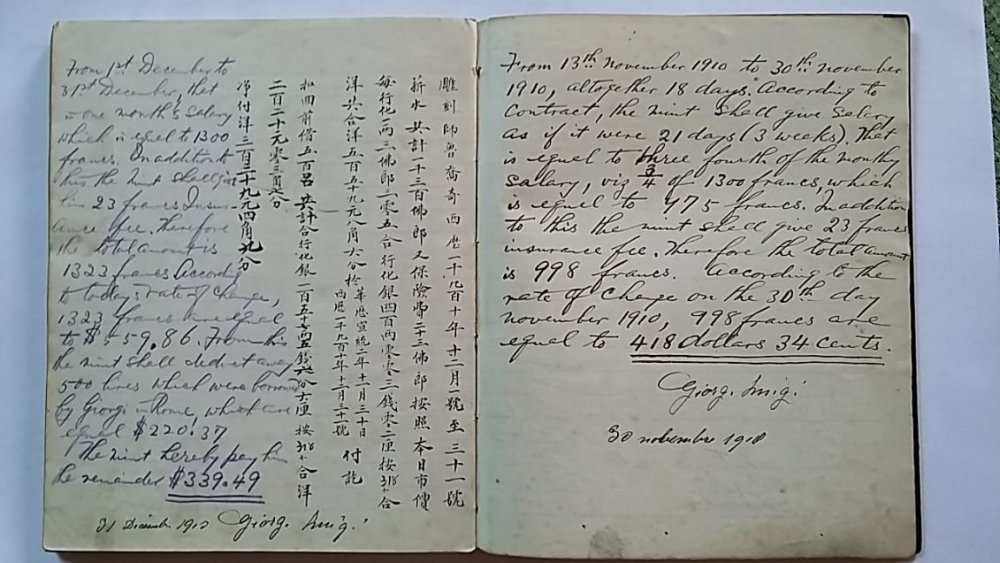 From 1st December to
31st December, that
is one month's salary
which is equal to 1300
francs. In addition to
this the mint shall give
him 23 francs Insur-
ance fee. Therefore
the total amount is
1323 francs According
to today's rate of change,
1323 francs are equal
to $559,86. From this
the mint shall deduct away
500 lires which were borrowed
by Giorgi in Rome, which are
equal $220.37
The mint hereby pay him
the remainder $339.49
31 Decimber 1910 Giorg.
雕刻師魯喬奇西曆一千九百十年十二月一號至三十一號
薪水共計一千三百佛郎又保險費二十三佛郎按照本日市價
每行化一兩三佛郎三零五合行化銀四百兩零零三錢零二厘按
洋共合洋五百五十九元八角六分於
華曆宣統二年十一月三十日
西曆一千九百十年十二月三十一號
付訖
扣回前借五百呂共計合行化銀一百五十七兩五錢
按
合洋
二百二十元零三角七分
淨付洋三百三十九元四角九分
From 13th November 1910 to 30th november
1910, altogether 18 days. According to
contract, the mint shall give salary
as if it were 21 days (3 weeks). That
is equal to three fourth of the monthly
salary, viz 3/4 of 1300 francs, which
is equal to 975 francs. In addition
to this the mint shall give 23 francs
insurance fee. Therefore the total amount
is 998 francs. According to the
rate of change on the 30th day
november 1910, 998 francs are
equal to 418 dollars 34 cents.
Giorg.
30 november 1910